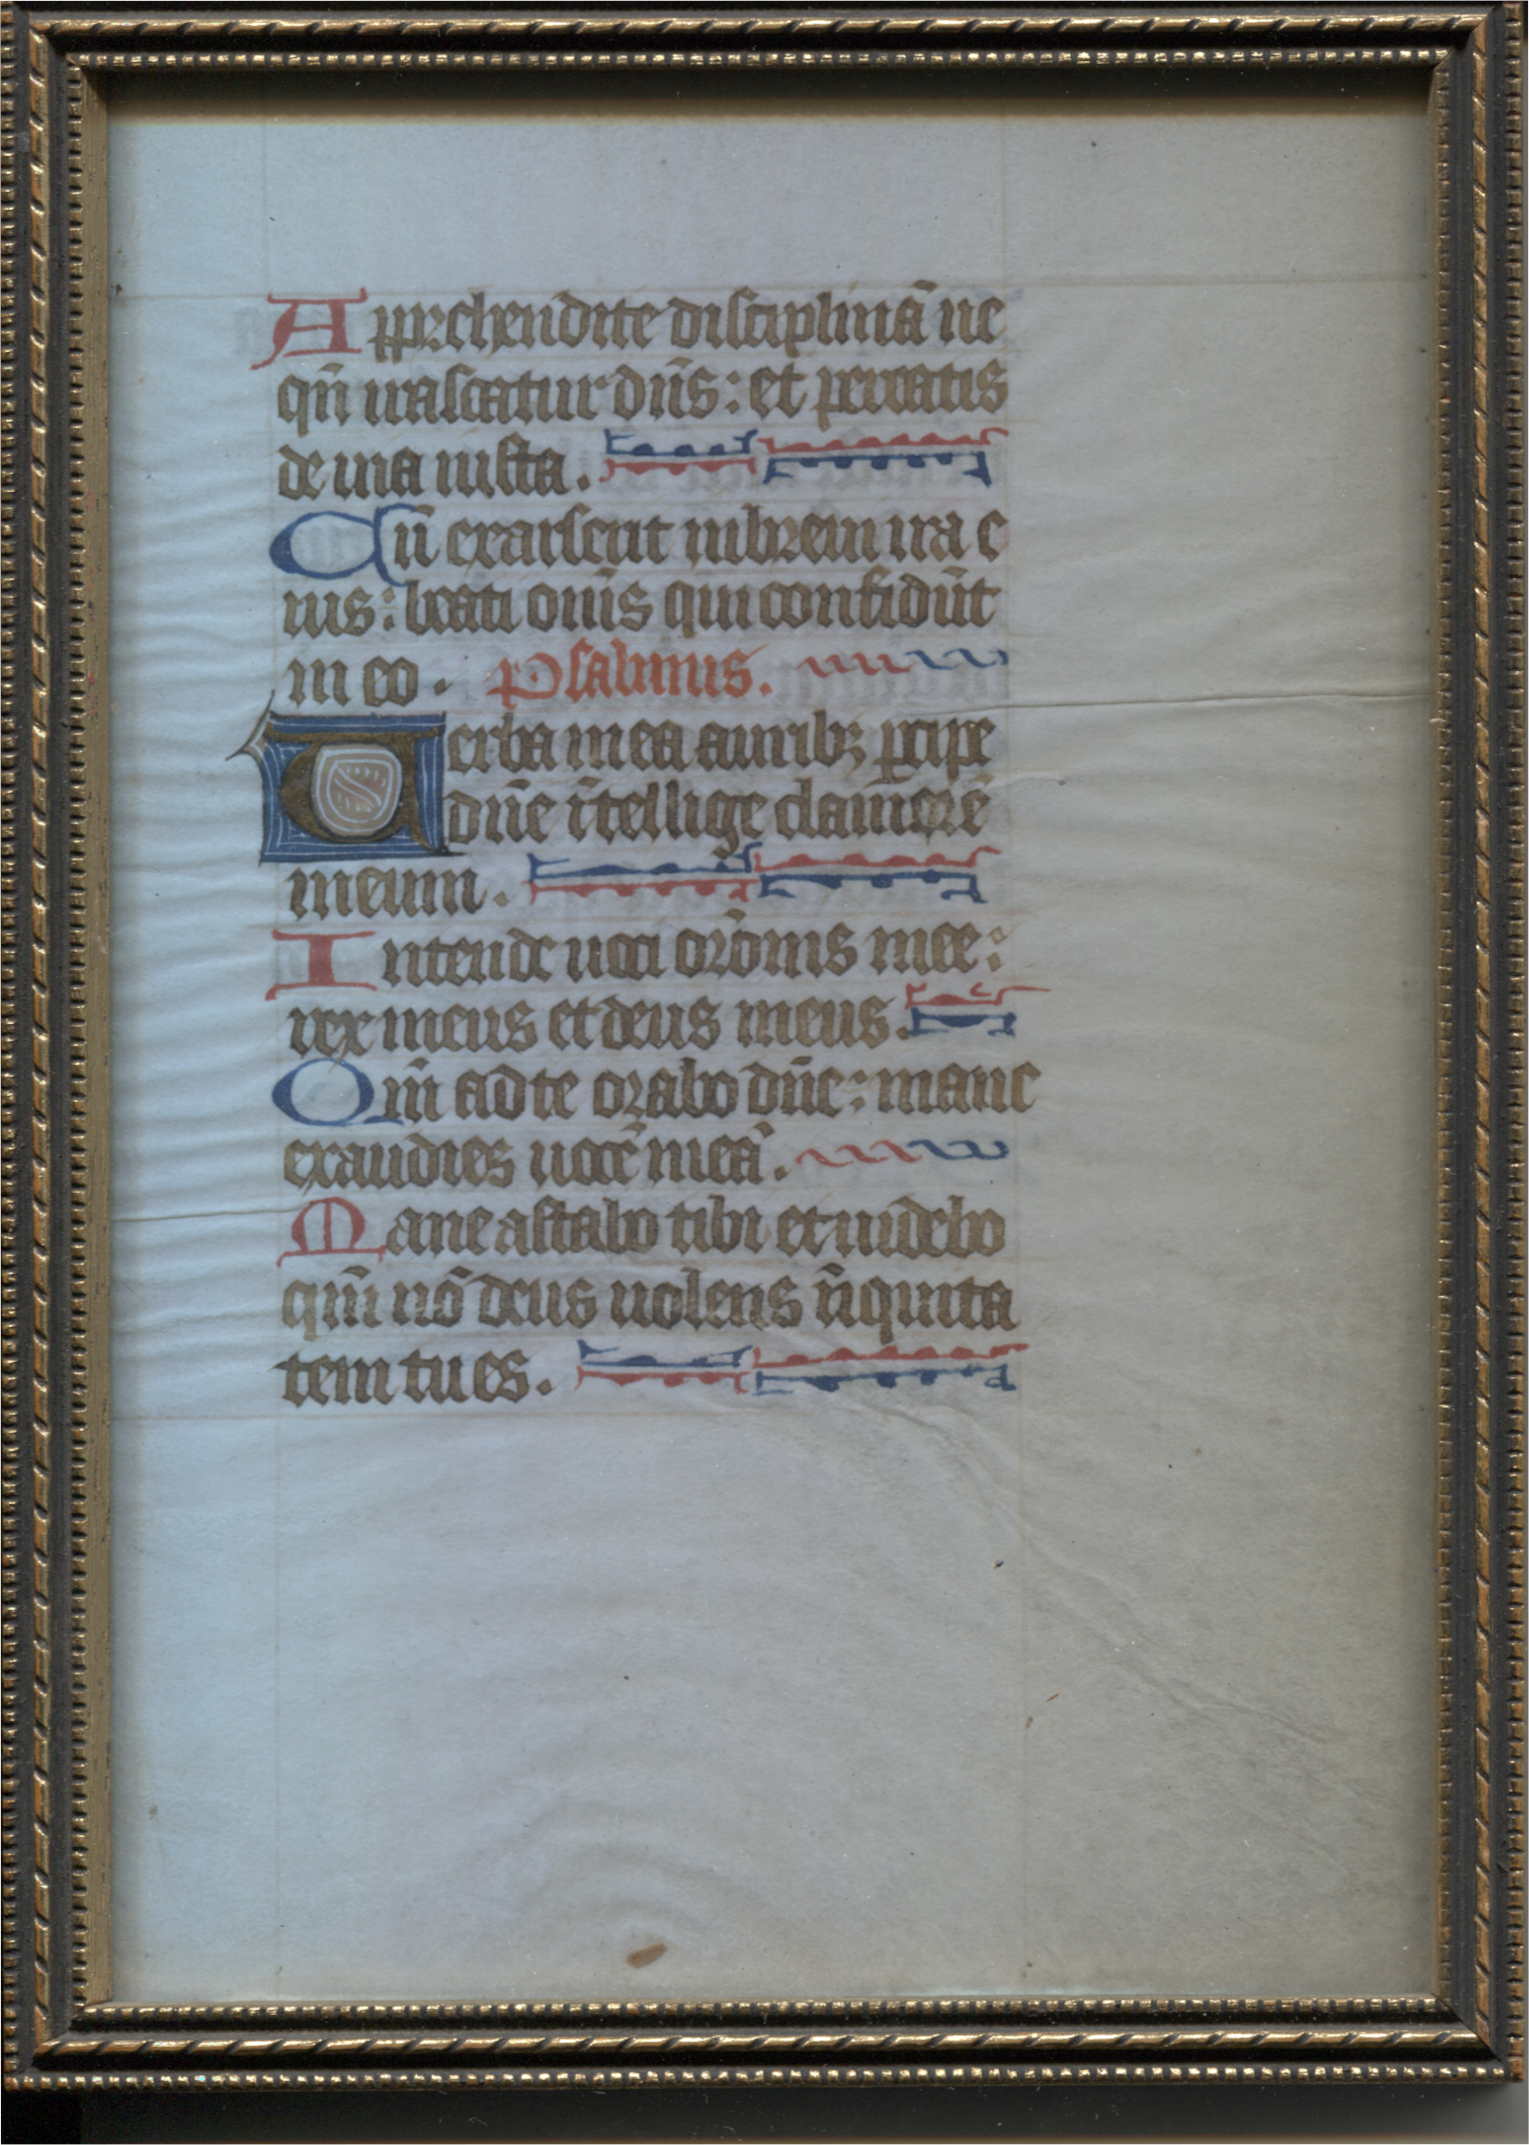 Apprehendite disciplinã ne
qñ irascatur dñs: et pereatis
de uia iusta.
Cũ exarserit inbreui ira e
ius: beati om̃s qui confidũt
in eo. Psalmus.
Verba mea aurib; ꝑcipe
dñe ĩtellige clamorẽ
meum.
Intende uoci orõnis mee:
rex meus et deus meus.
Qm̃ ad te orabo dñe: mane
exaudies uocẽ meã.
Mane astabo tibi et uidebo
qm̃ nõ deus uolens ĩiquita
tem tu es.